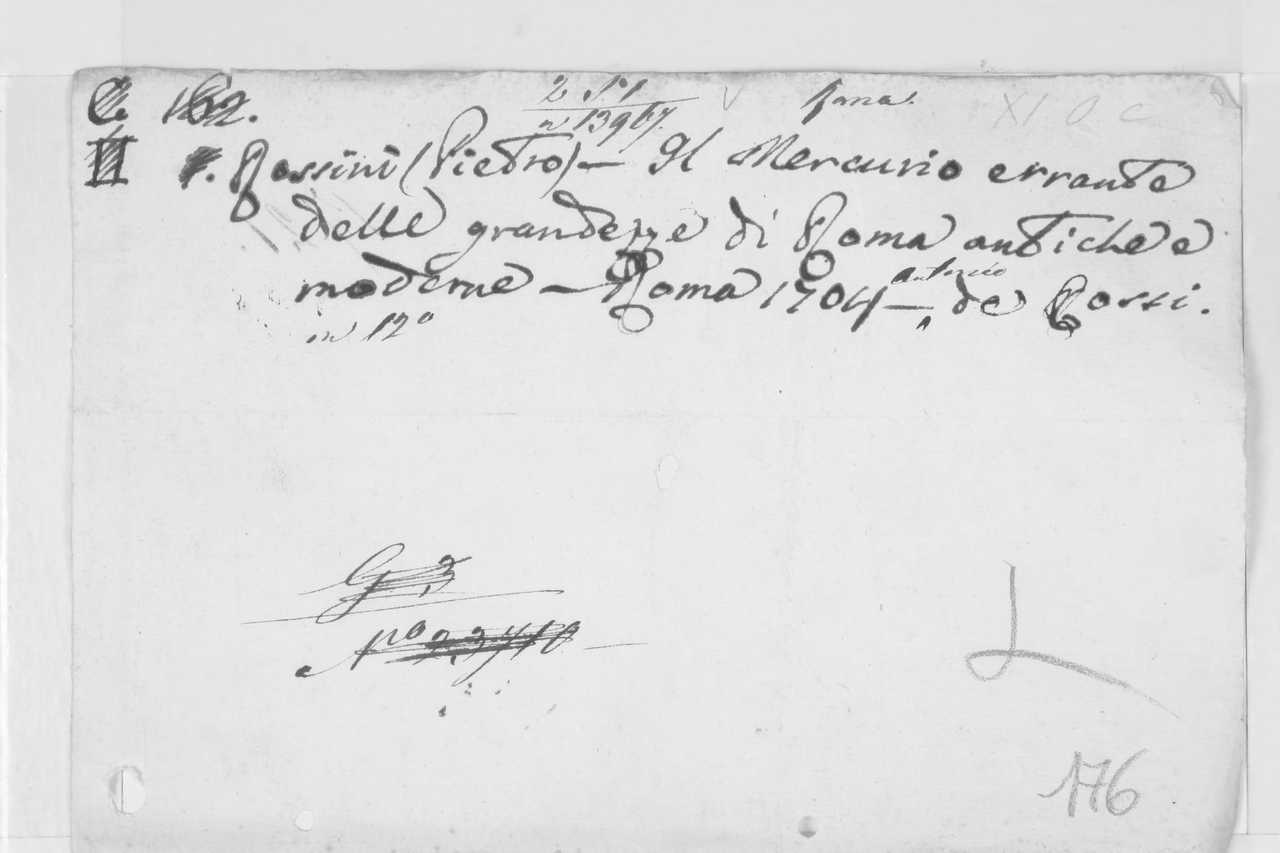 C. 162.
n 13967.
XI O C
II Rossini (Pietro) — Il Mercurio errante
delle grandezze di Roma antiche e
moderne — Roma 1704 — antonio de Rossi.
in 12°
G 3
N° 23710
L
176